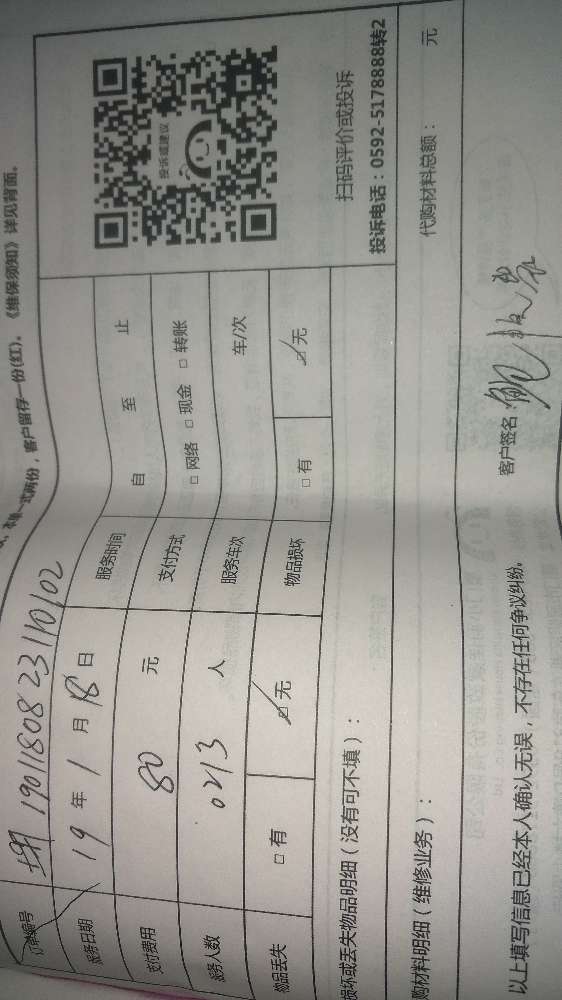 一式两份，客户留存一份(红)。《维保须知》详见背面。
订单编号 增 19011808 23110102
服务日期 19 年 1 月 18 日 服务时间 自 至 止
支付费用 80 元 支付方式 □ 网络 □ 现金 □ 转账
服务人数 0213 人 服务车次 车/次
物品丢失 □ 有 ☑ 无 物品损坏 □ 有 ☑ 无
投诉或建议
扫码评价或投诉
投诉电话：0592-5178888转2
损坏或丢失物品明细（没有可不填）：
购材料明细（维修业务）： 代购材料总额： 元
以上填写信息已经本人确认无误，不存在任何争议纠纷。 客户签名：